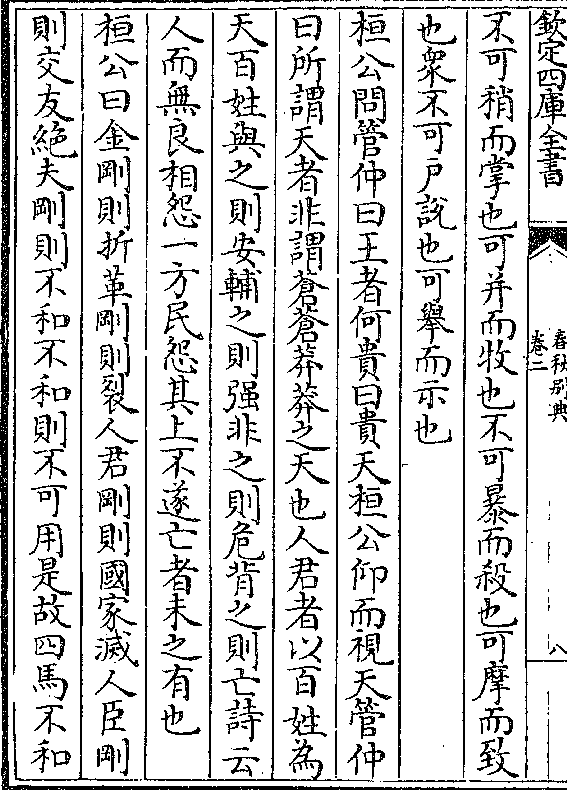 欽定四庫全書
春秋别典
卷二
八
不可稍而掌也可并而牧也不可暴而殺也可摩而致
也衆不可户說也可舉而示也
桓公問管仲曰王者何貴曰貴天桓公仰而視天管仲
曰所謂天者非謂蒼蒼莽莽之天也人君者以百姓為
天百姓與之則安輔之則强非之則危背之則亡詩云
人而無良相怨一方民怨其上不遂亡者未之有也
桓公曰金剛則折革剛則裂人君剛則國家滅人臣剛
則交友絶夫剛則不和不和則不可用是故四馬不和